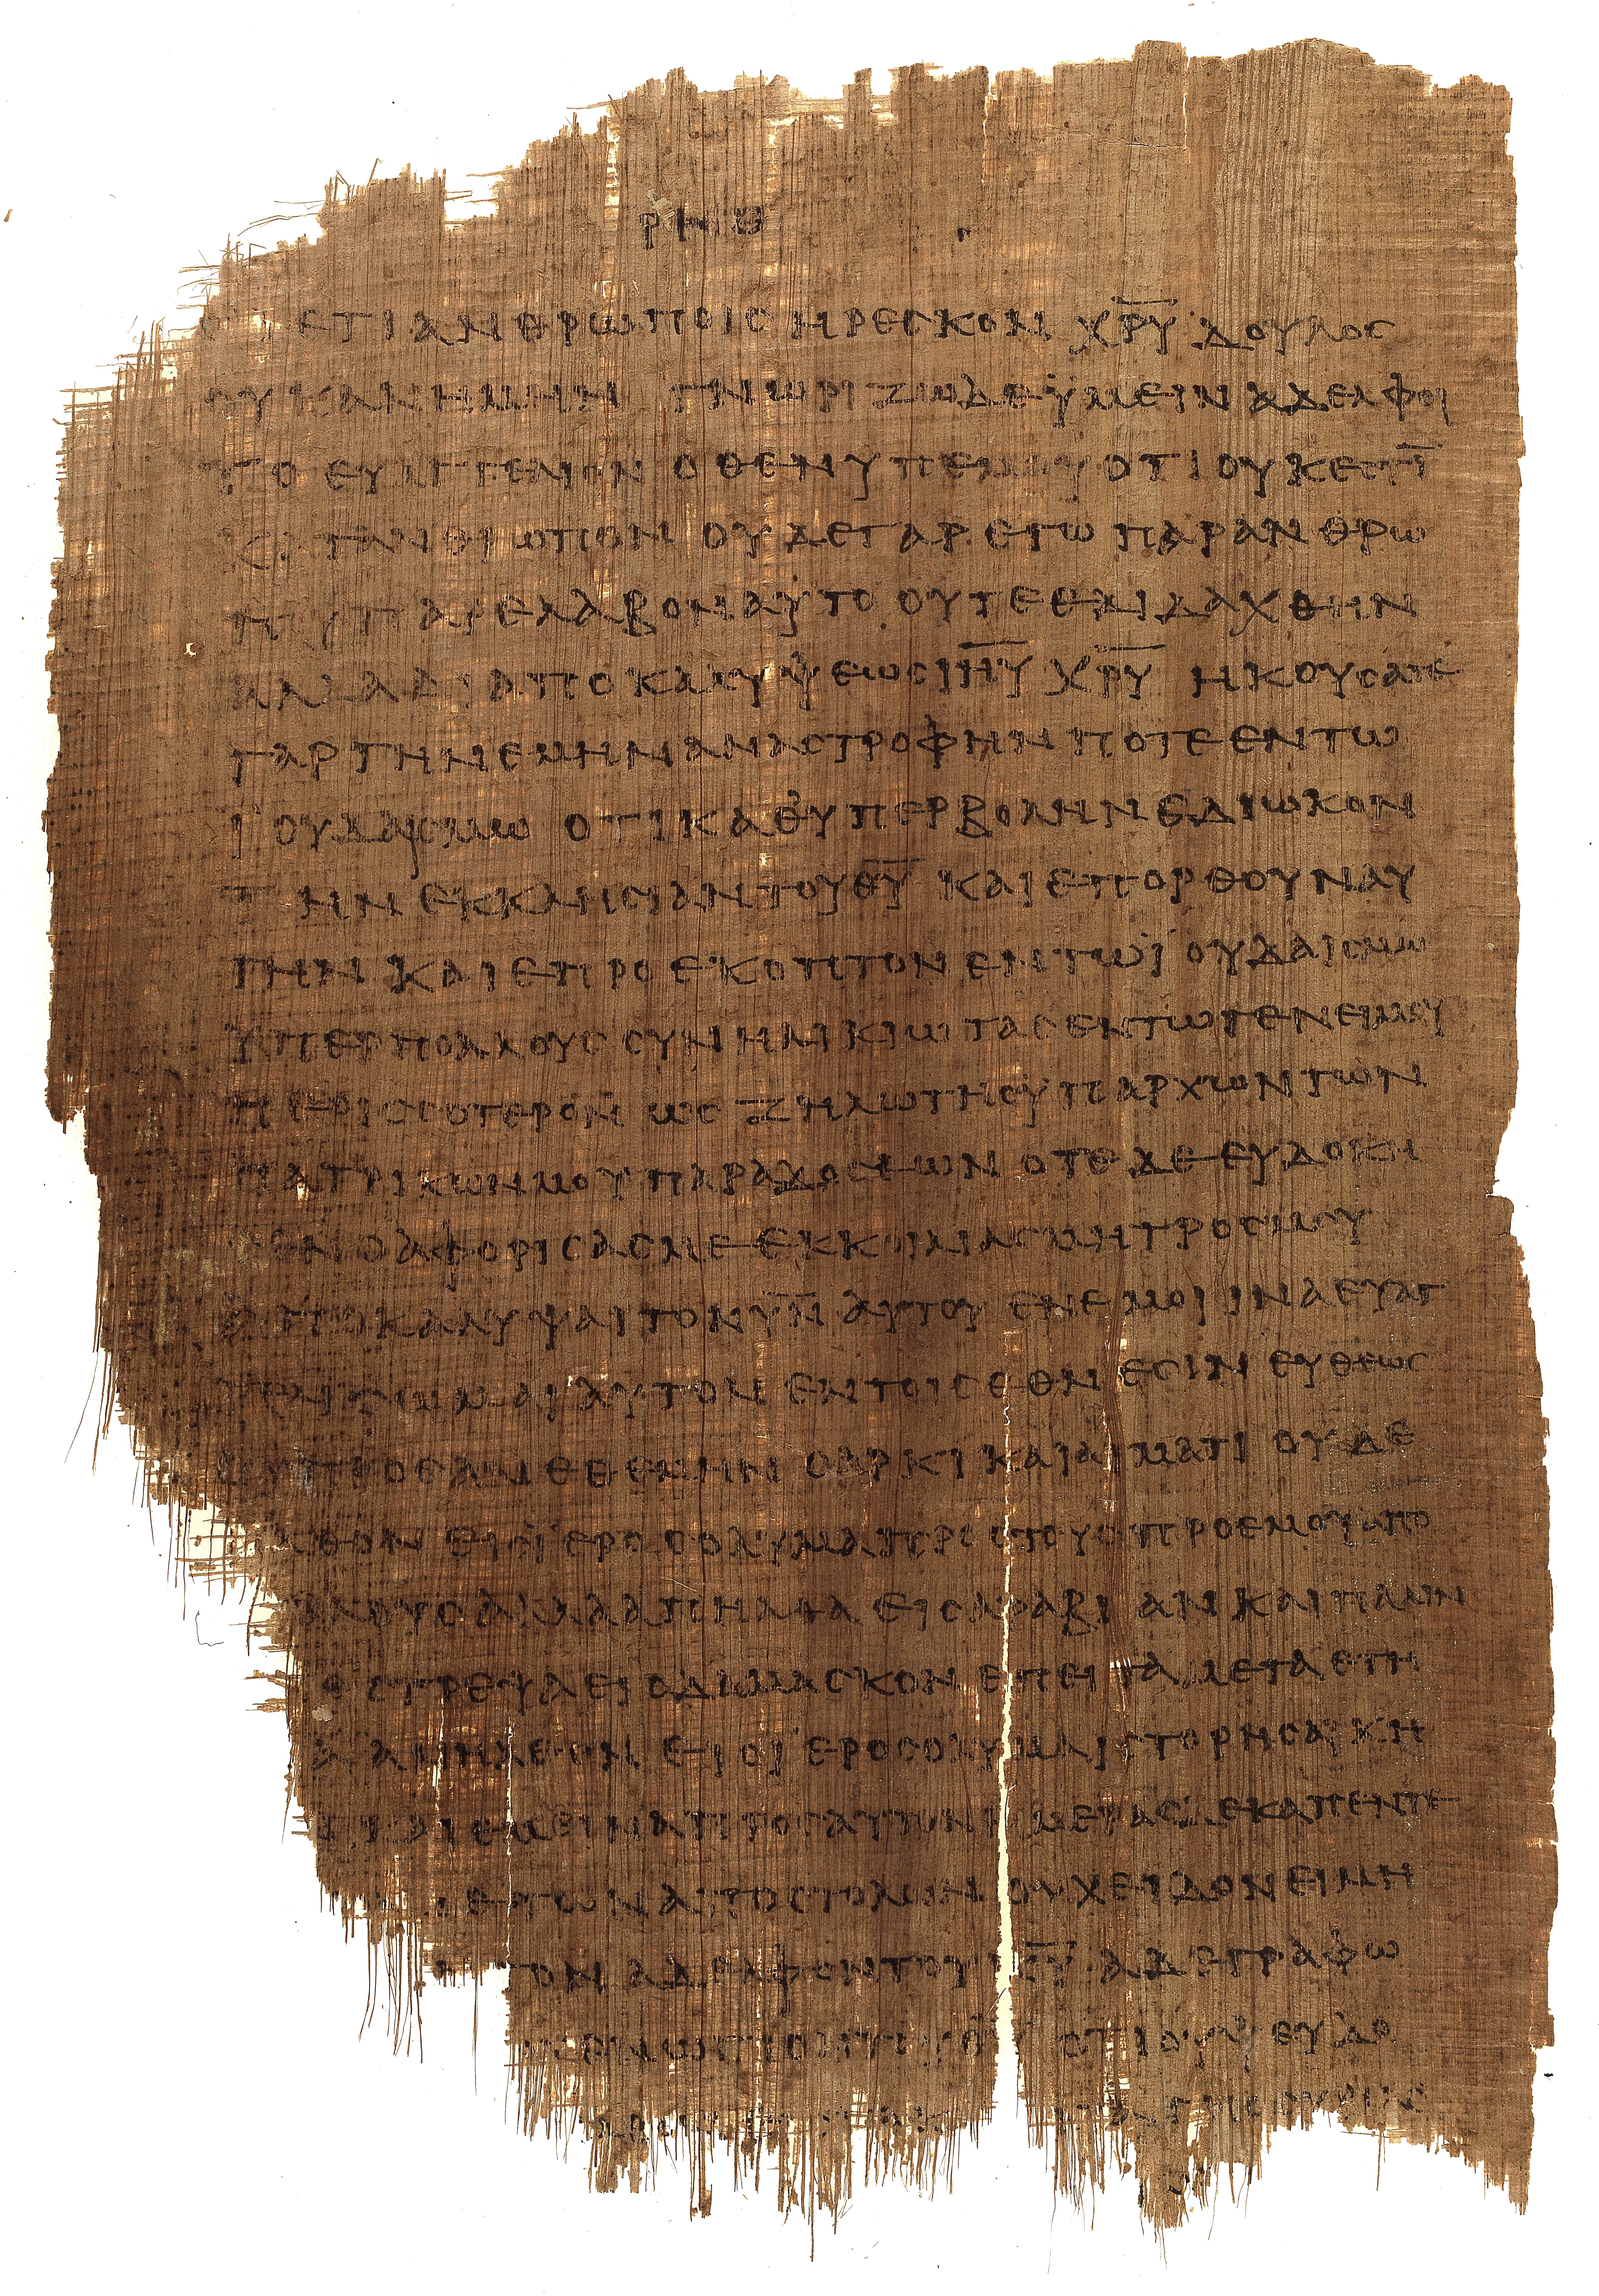 ΡΝΘ
ΕΤΙ ΑΝΘΡΩΠΟΙΣ ΗΡΕΣΚΟΝ Χ̅Ρ̅Υ̅ ΔΟΥΛΟΣ
ΟΥΚ ΑΝ ΗΜΗΝ ΓΝΩΡΙΖΩ ΔΕ ΫΜΕΙΝ ΑΔΕΛΦΟΙ
ΤΟ ΕΥΑΓΓΕΛΙΟΝ ΟΤΙ ΟΥΚ ΕΣΤΙ̅
ΚΑΤΑ ΑΝΘΡΩΠΟΝ ΟΥΔΕ ΓΑΡ ΕΓΩ ΠΑΡΑ ΑΝΘΡΩ
ΠΟΥ ΠΑΡΕΛΑΒΟΝ ΑΥΤΟ ΟΥΤΕ ΕΔΙΔΑΧΘΗΝ
ΑΛΛΑ ΔΙ ΑΠΟΚΑΛΥΨΕΩΣ Ι̅Η̅Υ̅ Χ̅Ρ̅Υ̅ ΗΚΟΥΣΑΤΕ
ΓΑΡ ΤΗΝ ΕΜΗΝ ΑΝΑΣΤΡΟΦΗΝ ΠΟΤΕ ΕΝ ΤΩ
ΪΟΥΔΑΙΣΜΩ ΟΤΙ ΚΑΘ ΥΠΕΡΒΟΛΗΝ ΕΔΙΩΚΟΝ
ΤΗΝ ΕΚΚΛΗΣΙΑΝ ΤΟΥ Θ̅Υ̅ ΚΑΙ ΕΠΟΡΘΟΥΝ ΑΥ
ΤΗΝ ΚΑΙ ΕΠΡΟΕΚΟΠΤΟΝ ΕΝ ΤΩ ΪΟΥΔΑΙΣΜΩ
ΫΠΕΡ ΠΟΛΛΟΥΣ ΣΥΝΗΛΙΚΙΩΤΑΣ ΕΝ ΤΩ ΓΕΝΕΙ ΜΟΥ
ΠΕΡΙΣΣΟΤΕΡΟΝ ΩΣ ΖΗΛΩΤΗΣ ΫΠΑΡΧΩΝ ΤΩΝ
ΠΑΤΡΙΚΩΝ ΜΟΥ ΠΑΡΑΔΟΣΕΩΝ ΟΤΕ ΔΕ ΕΥΔΟΚΗ
ΣΕΝ Ο ΑΦΟΡΙΣΑΣ ΜΕ ΕΚ ΚΟΙΛΙΑΣ ΜΗΤΡΟΣ ΜΟΥ
ΑΠΟΚΑΛΥΨΑΙ ΤΟΝ Υ̅Ν̅ ΑΥΤΟΥ ΕΝ ΕΜΟΙ ΙΝΑ ΕΥΑΓ
ΓΕΛΙΣΩΜΑΙ ΑΥΤΟΝ ΕΝ ΤΟΙΣ ΕΘΝΕΣΙΝ ΕΥΘΕΩΣ
ΟΥ ΠΡΟΣΑΝΕΘΕΜΗΝ ΣΑΡΚΙ ΚΑΙ ΑΙΜΑΤΙ ΟΥΔΕ
ΛΘΟΝ ΕΙΣ ΪΕΡΟΣΟΛΥΜΑ ΠΡΟΣ ΤΟΥΣ ΠΡΟ ΕΜΟΥ ΑΠΟ
ΣΤΟΛΟΥΣ ΑΛΛΑ ΑΠΗΛΘΑ ΕΙΣ ΑΡΑΒΙΑΝ ΚΑΙ ΠΑΛΙΝ
ΣΤΡΕΨΑ ΕΙΣ ΔΑΜΑΣΚΟΝ ΕΠΕΙΤΑ ΜΕΤΑ ΕΤΗ
ΑΝΗΛΘΟΝ ΕΙΣ ΪΕΡΟΣΟΛΥΜΑ ΙΣΤΟΡΗΣΑΙ ΚΗ
ΦΑΝ ΚΑΙ ΕΜΕΙΝΑ ΠΡΟΣ ΑΥΤΟΝ ΗΜΕΡΑΣ ΔΕΚΑΠΕΝΤΕ
ΔΕ ΤΩΝ ΑΠΟΣΤΟΛΩΝ ΟΥΧ ΕΙΔΟΝ ΕΙ ΜΗ
ΤΟΝ ΑΔΕΛΦΟΝ ΤΟΥ Κ̅Υ̅ Α ΔΕ ΓΡΑΦΩ
ΕΝΩΠΙΟΝ ΤΟΥ Θ̅Υ̅ ΟΤΙ ΟΥ ΨΕΥΔΟ
ΤΗΣ ΣΥΡΙΑΣ